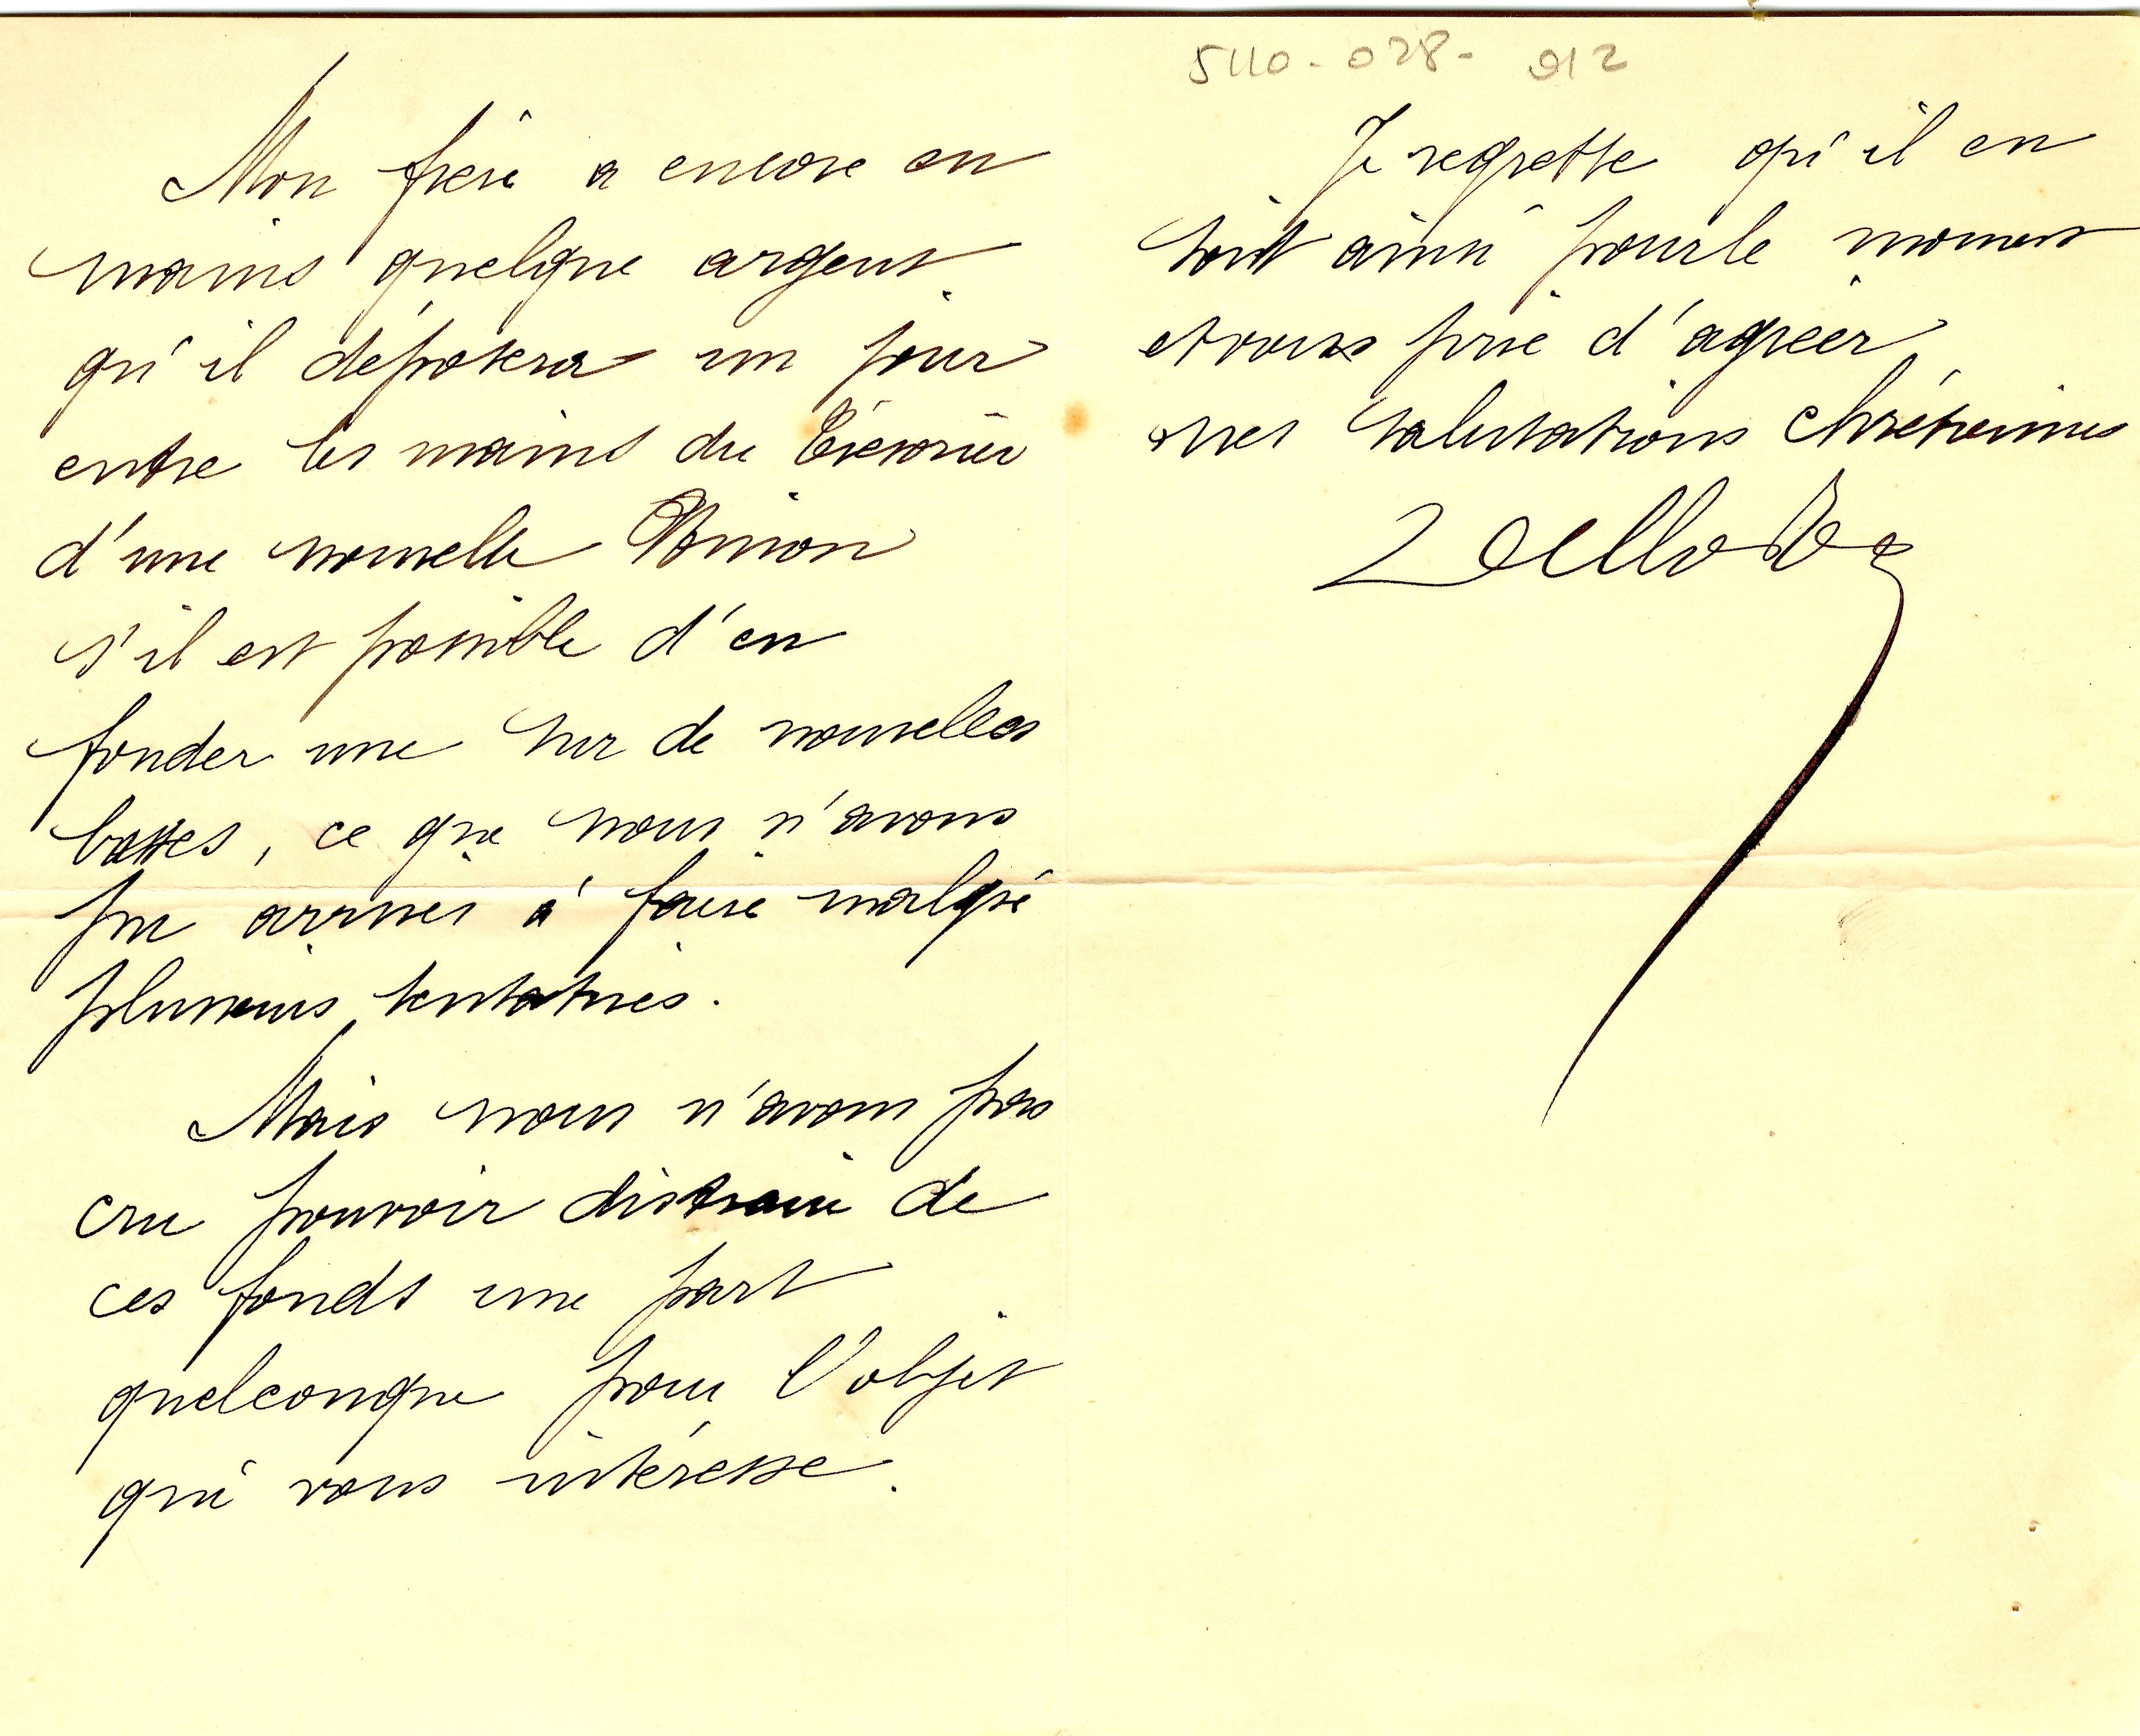 Mon frère a encore en
mains quelque argent
qu'il déposera un jour
entre les mains du Trésorier
d'une nouvelle Union
s'il est possible d'en
fonder une sur de nouvelles
bases, ce que nous n'avons
pu arriver à faire malgré
plusieurs tentatives.
Mais nous n'avons pas
cru pouvoir distraire de
ces fonds une part
quelconque pour l'objet
qui vous intéresse.
5110-028-012
Je regrette qu'il en
soit ainsi pour le moment
et vous prie d'agréer
mes salutations chrétiennes